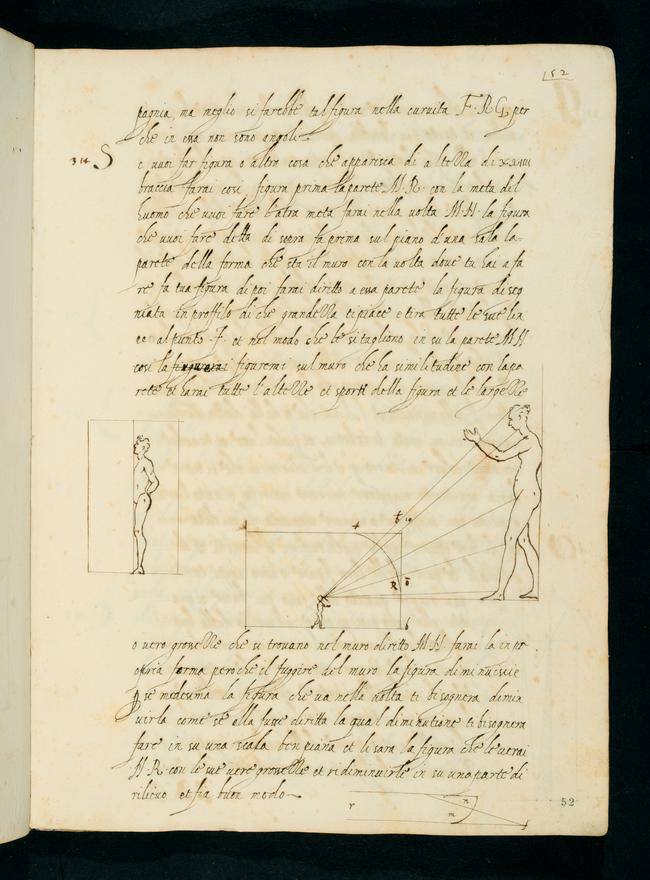 152
pagnia, ma meglio si farebbe tal figura nella curuita F·R·G, per
che in essa non sono angoli
314 Se vuoi far figura o altra cosa che apparisca di altezza di xxiiii
braccia farai cosi figura prima la parete M·R· con la meta del
huomo che vuoi fare l'atra meta farai nella volta M·H· la figura
che vuoi fare detta di sopra fa prima sul piano d'una sala la
parete della forma che sta il muro con la volta dove tu hai a fa
re fa tua figura di poi farai diritto a essa parete la figura diseg
niata in proffilo di che grandezza ti piace e tira tutte le sue lin
ee al punto ·F· et nel modo che le si tagliono in su la parete M H
cosi la figurerai sul muro che ha similitudine con la pa
rete et harai tutte l'altezze et sporti della figura et le largezze
o vero grossezze che si trovano nel muro diritto M·H· farai la in pr
opria forma peroche il fuggire del muro la figura diminuiscie
se medesima la figura che va nella volta ti bisognera dimin
uirla come se ella fusse diritta la qual diminutione ti bisognera
fare in su una sala ben piana et li sara la figura che leverai
H·R· con le sue vere grossezze et ridiminuirle in su uno parte di
rilievo et fia buon modo
r
n
m
52